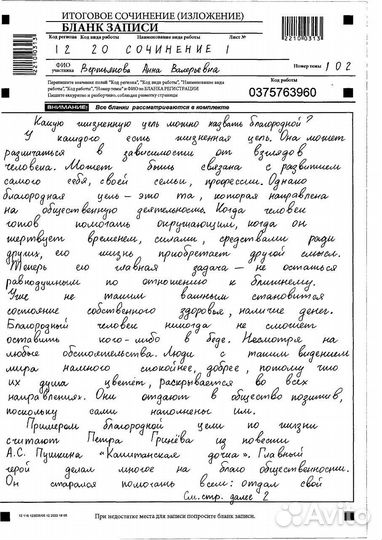 ИТОГОВОЕ СОЧИНЕНИЕ (ИЗЛОЖЕНИЕ)
БЛАНК ЗАПИСИ
Код региона Код вида работы Наименование вида работы Лист №
12 20 СОЧИНЕНИЕ 1
ФИО участника Вертьянова Анна Валерьевна Номер темы 102
Перепишите значения полей "Код региона", "Код вида работы", "Наименование вида
работы", "Код работы", "Номер темы" и ФИО из БЛАНКА РЕГИСТРАЦИИ
Пишите аккуратно и разборчиво, соблюдая разметку страницы
Код работы
0375763960
ВНИМАНИЕ! Все бланки рассматриваются в комплекте
Какую жизненную цель можно назвать благородной?
У каждого есть жизненная цель. Она может
различаться в зависимости от взглядов
человека. Может быть связана с развитием
самого себя, своей семьи, профессии. Однако
благородная цель – это та, которая направлена
на общественную деятельность. Когда человек
готов помогать окружающим, когда он
жертвует временем, силами, средствами ради
других, его жизнь приобретает другой смысл.
Теперь его главная задача – не остаться
равнодушным по отношению к ближнему.
Уже не таким важным становится
состояние собственного здоровья, наличие денег.
Благородный человек никогда не сможет
оставить кого-либо в беде. Несмотря на
любые обстоятельства. Люди с таким видением
мира намного спокойнее, добрее, потому что
их душа цветёт, раскрывается во всех
направлениях. Они отдают в общество позитив,
поскольку сами наполнены им.
Примером благородной цели по жизни
считают Петра Гринёва из повести
А.С. Пушкина «Капитанская дочка». Главный
герой делал многое на благо общественности.
Он старался помогать всем: отдал свой
См. стр. далее 2
При недостатке места для записи попросите бланк записи.
Avito